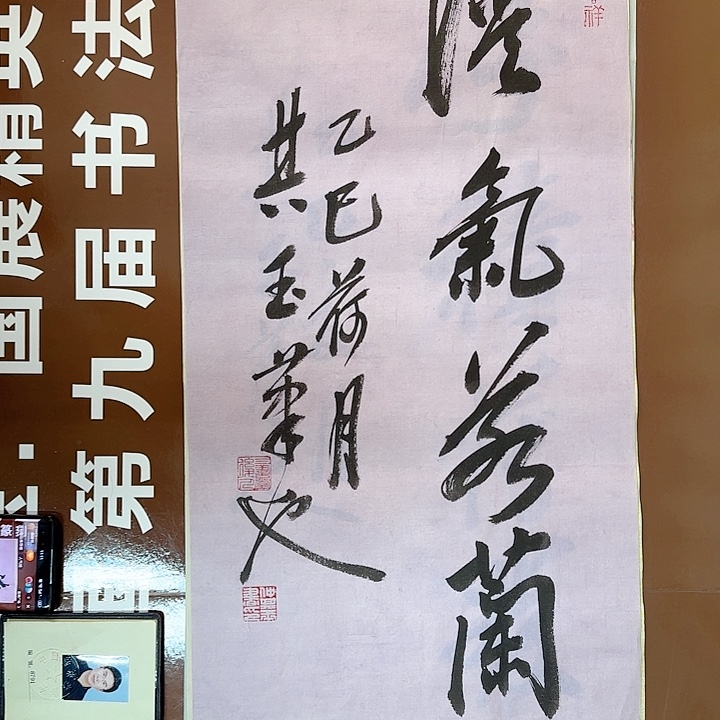 氣若蘭
乙巳荷月
其玉筆也
国展精英
第九届书法